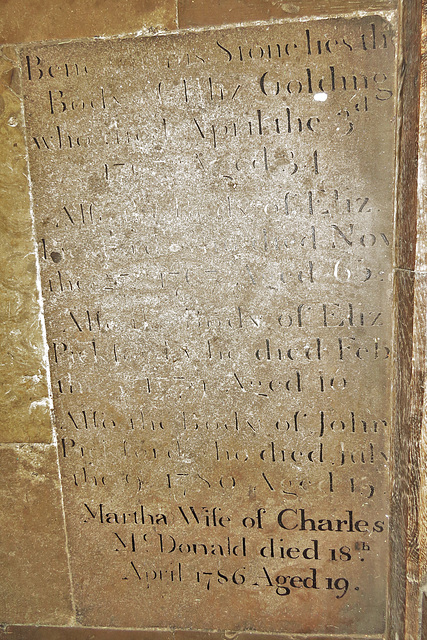 Stone lies th
Body of Eliz Golding
who died April the 3d
Aged 34
Also the Body of Eliz
died Nov
the 27 Aged 63
Also the Body of Eliz
Pickford who died Feb
Aged 10
Also the Body of John
Pickford who died July
the 9 1780 Aged 15
Martha Wife of Charles
Mc Donald died 18th
April 1786 Aged 19.